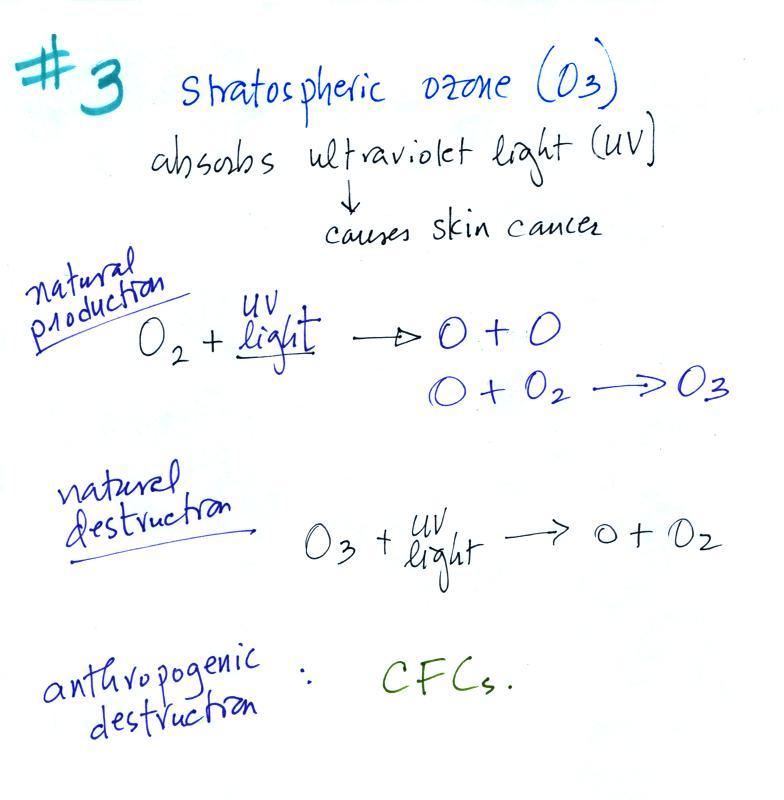 #3 Stratospheric ozone (O3)
absorbs ultraviolet light (UV)
↓
causes skin cancer
natural
production
O2 + UV light → O + O
O + O2 → O3
natural
destruction
O3 + UV light → O + O2
anthropogenic
destruction : CFCs.